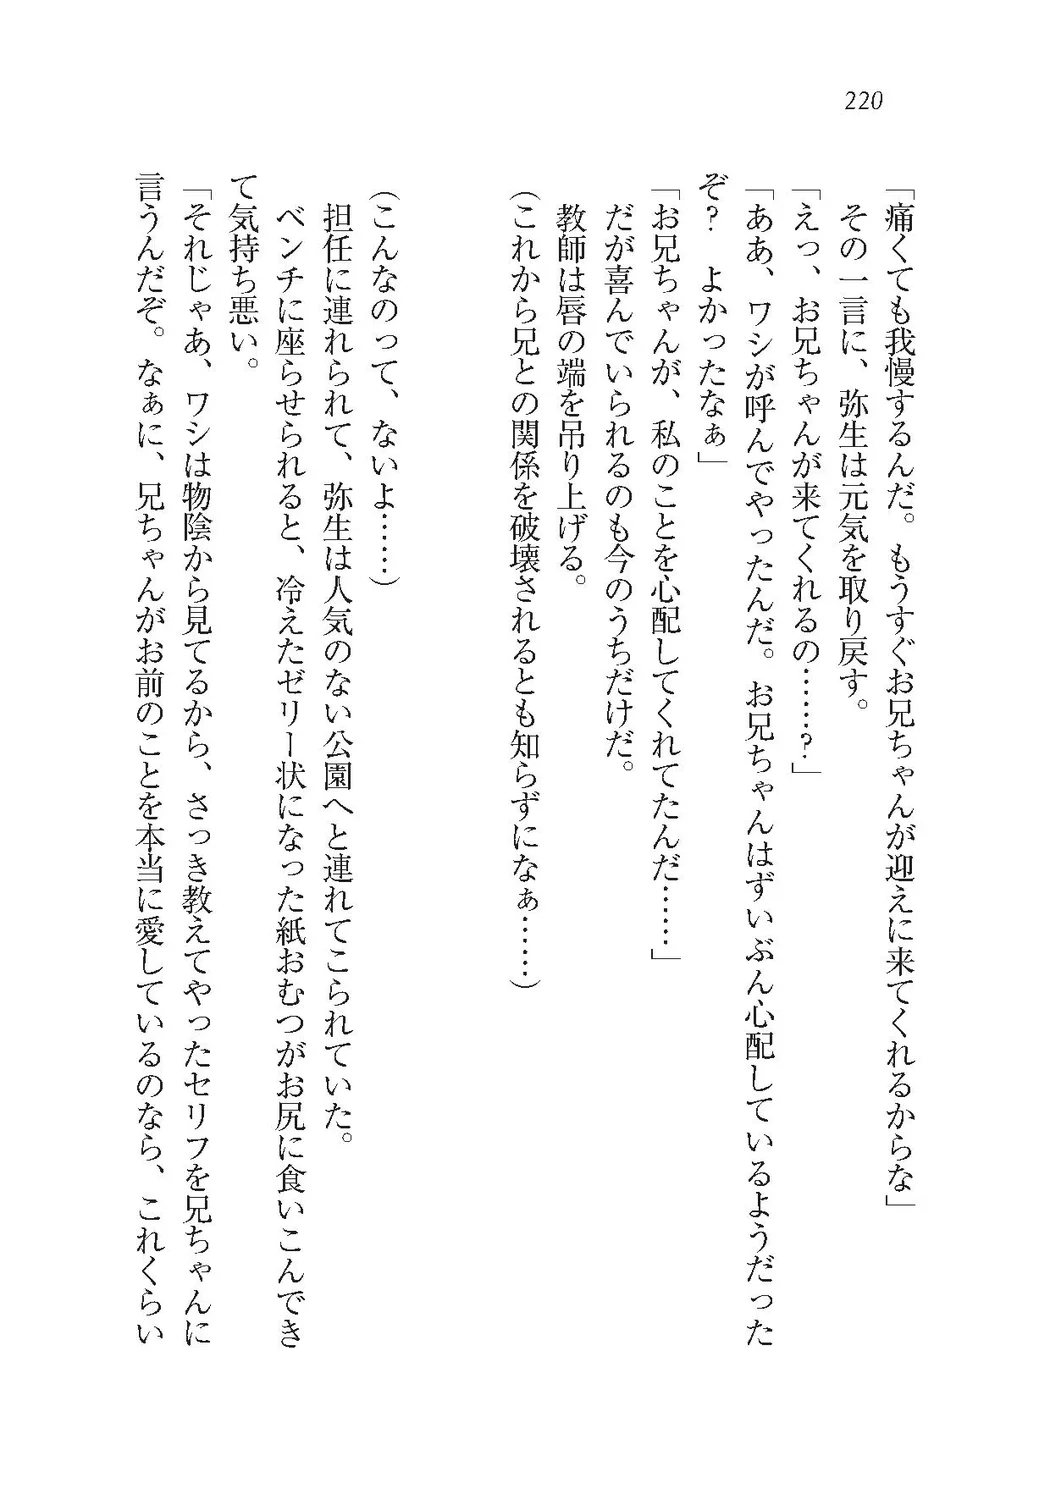 220
「痛くても我慢するんだ。もうすぐお兄ちゃんが迎えに来てくれるからな」
その一言に、弥生は元気を取り戻す。
「えっ、お兄ちゃんが来てくれるの……？」
「ああ、ワシが呼んでやったんだ。お兄ちゃんはずいぶん心配しているようだった
ぞ？　よかったなぁ」
「お兄ちゃんが、私のことを心配してくれてたんだ……」
だが喜んでいられるのも今のうちだけだ。
教師は唇の端を吊り上げる。
（これから兄との関係を破壊されるとも知らずになぁ……）
（こんなのって、ないよ……）
担任に連れられて、弥生は人気のない公園へと連れてこられていた。
ベンチに座らせられると、冷えたゼリー状になった紙おむつがお尻に食いこんでき
て気持ち悪い。
「それじゃあ、ワシは物陰から見てるから、さっき教えてやったセリフを兄ちゃんに
言うんだぞ。なぁに、兄ちゃんがお前のことを本当に愛しているのなら、これくらい